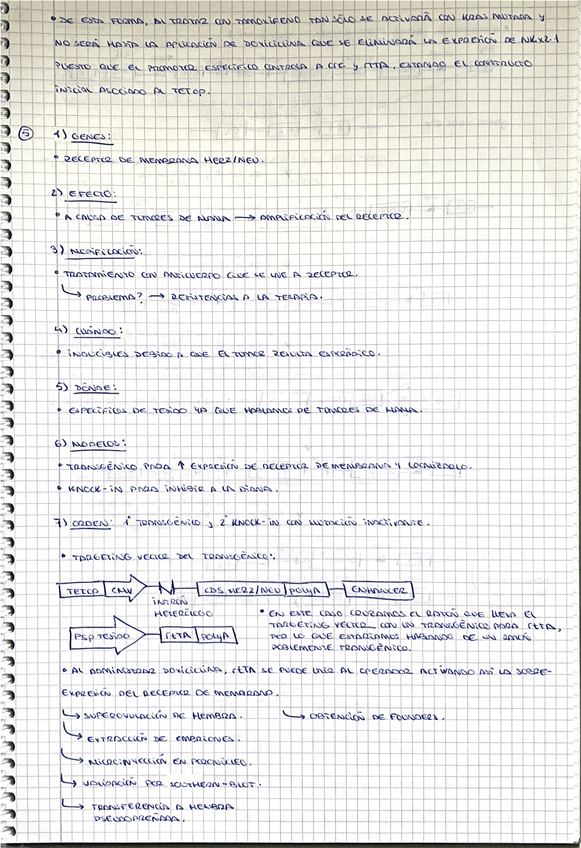 • DE ESTA FORMA, AL TRATAR CON TAMOXIFENO TAN SÓLO SE ACTIVARÁ CON KRAS MUTADA Y
NO SERÁ HASTA LA APLICACIÓN DE DOXICICLINA QUE SE ELIMINARÁ LA EXPRESIÓN DE NKX2.1
PUESTO QUE EL PROMOTOR ESPECÍFICO CONTROLA A CRE Y RTTA, ESTANDO EL CONSTRUCTO
INICIAL ASOCIADO AL TETOP.
⑤ 1) GENES:
• RECEPTOR DE MEMBRANA HER2/NEU.
2) EFECTO:
• A CAUSA DE TUMORES DE MAMA → AMPLIFICACIÓN DEL RECEPTOR.
3) MODIFICACIÓN:
• TRATAMIENTO CON ANTICUERPO QUE SE UNE A RECEPTOR.
↳ PROBLEMA? → RESISTENCIAS A LA TERAPIA.
4) CUÁNDO:
• INDUCIBLES DEBIDO A QUE EL TUMOR RESULTA ESPORÁDICO.
5) DÓNDE:
• ESPECÍFICOS DE TEJIDO YA QUE HABLAMOS DE TUMORES DE MAMA.
6) MODELOS:
• TRANSGÉNICO PARA ↑ EXPRESIÓN DE RECEPTOR DE MEMBRANA Y LOCALIZARLO.
• KNOCK-IN PARA INHIBIR A LA DIANA.
7) ORDEN: 1º TRANSGÉNICO y 2º KNOCK-IN CON MUTACIÓN INACTIVANTE.
• TARGETING VECTOR DEL TRANSGÉNICO:
TETOP CMV CDS HER2/NEU POLYA ENHANCER
INTRÓN
HETERÓLOGO
PSP TEJIDO rtTA POLYA
• EN ESTE CASO CRUZAMOS EL RATÓN QUE LLEVA EL
TARGETING VECTOR CON UN TRANSGÉNICO PARA rtTA,
POR LO QUE ESTARÍAMOS HABLANDO DE UN RATÓN
DOBLEMENTE TRANSGÉNICO.
• AL ADMINISTRAR DOXICICLINA, rtTA SE PUEDE UNIR AL OPERADOR ACTIVANDO ASÍ LA SOBRE-
EXPRESIÓN DEL RECEPTOR DE MEMBRANA.
↳ SUPEROVULACIÓN DE HEMBRA. ↳ OBTENCIÓN DE FOUNDERS.
↳ EXTRACCIÓN DE EMBRIONES.
↳ MICROINYECCIÓN EN PRONÚCLEO.
↳ VALIDACIÓN POR SOUTHERN-BLOT.
↳ TRANSFERENCIA A HEMBRA
PSEUDOPREÑADA.